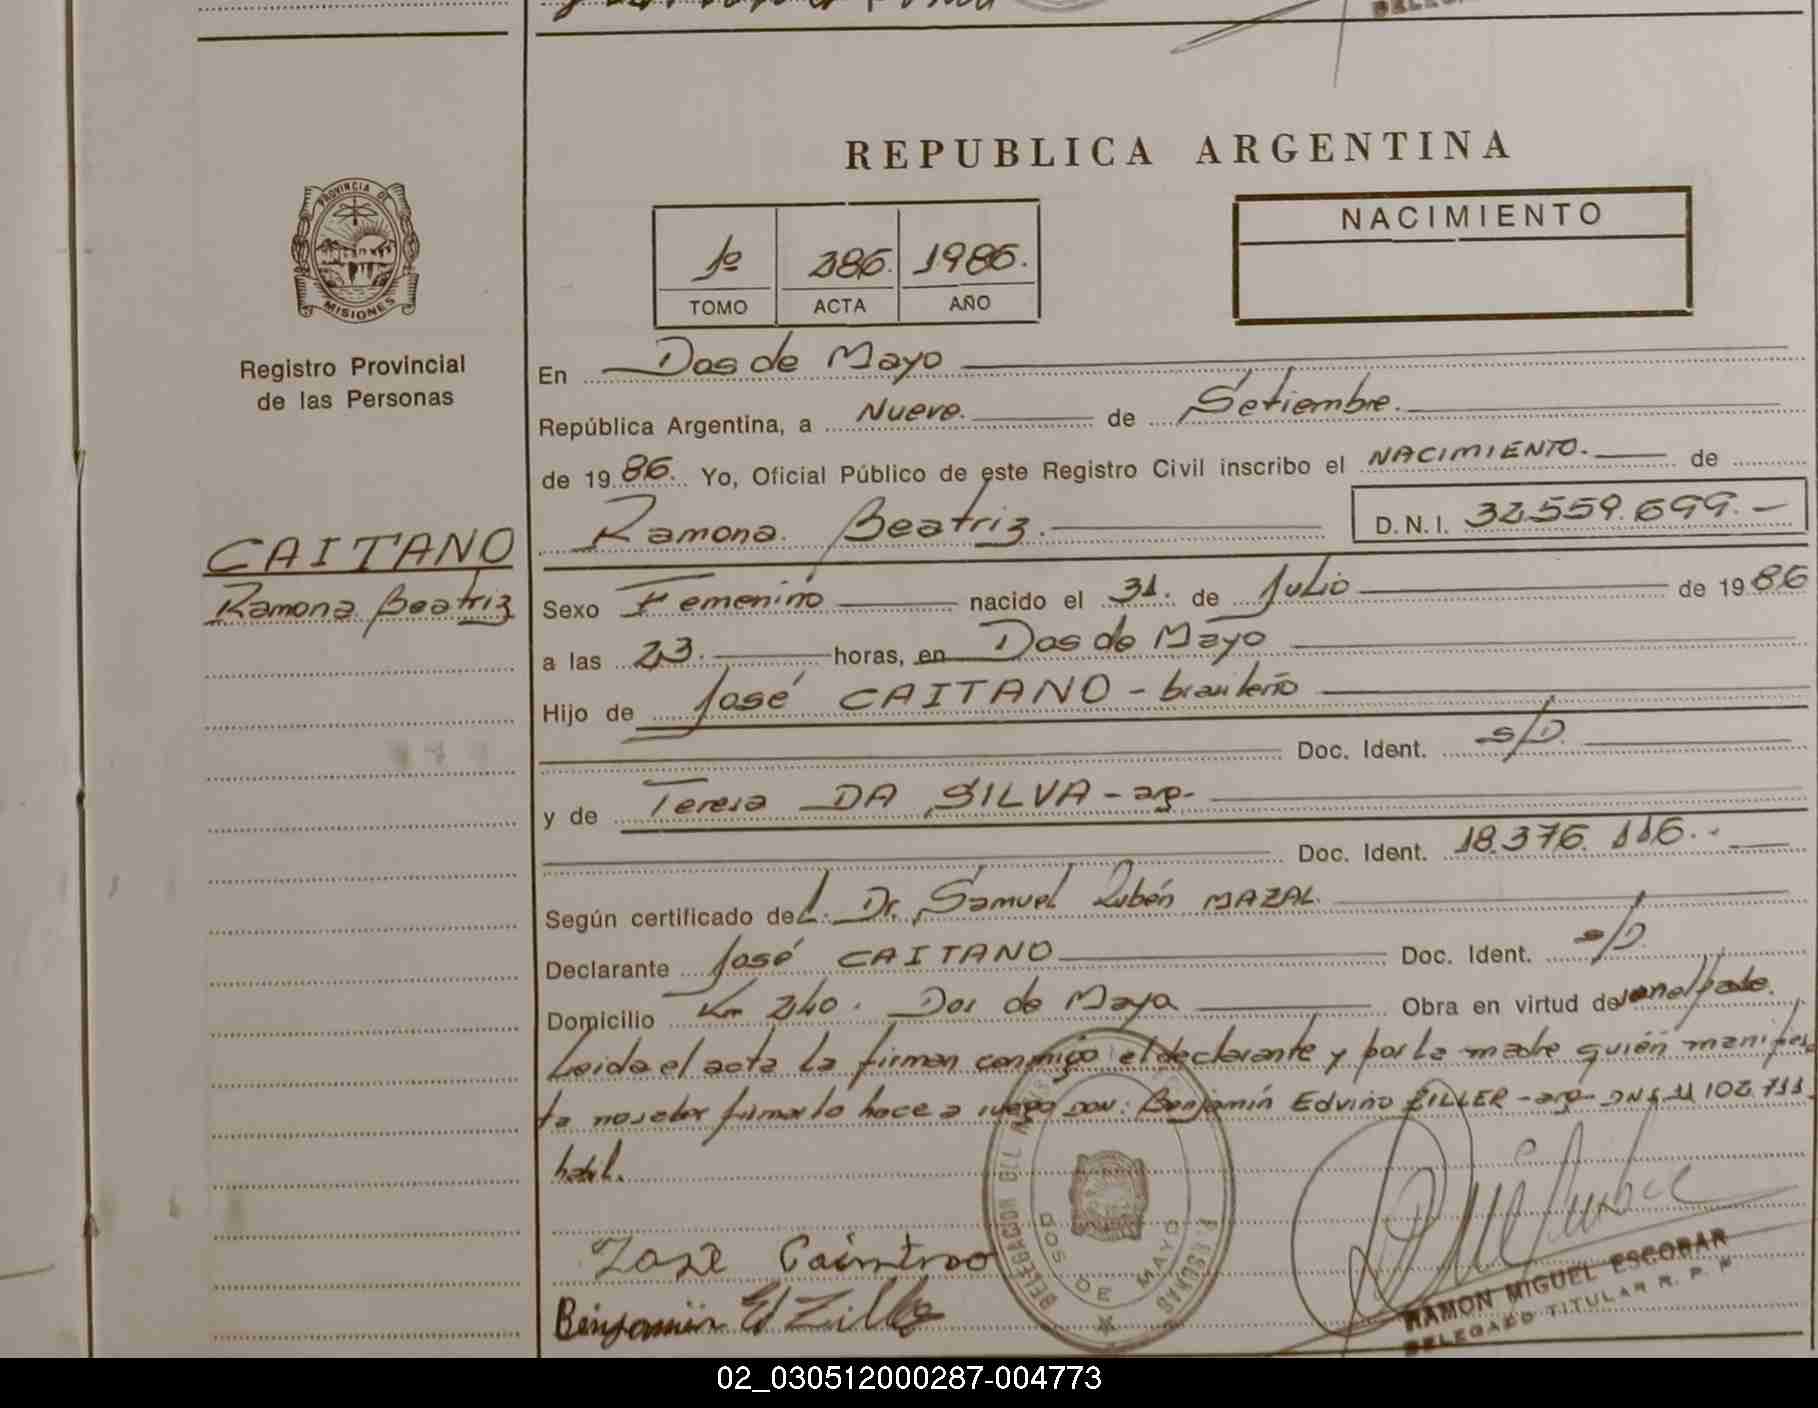 REPUBLICA ARGENTINA
PROVINCIA DE
MISIONES
Registro Provincial
de las Personas
1º 286. 1986.
TOMO ACTA AÑO
NACIMIENTO
En Dos de Mayo
República Argentina, a Nueve. de Setiembre.
de 1986. Yo, Oficial Público de este Registro Civil inscribo el NACIMIENTO. de
Ramona Beatriz. D.N.I. 32.559.699.-
CAITANO
Ramona Beatriz
Sexo Femenino nacido el 31. de Julio de 1986
a las 23. horas, en Dos de Mayo
Hijo de José CAITANO - brasileño
Doc. Ident. s/D.
y de Teresa DA SILVA - arg-
Doc. Ident. 18.376.116.-
Según certificado del. Dr. Samuel Rubén MAZAL.
Declarante José CAITANO Doc. Ident. s/D.
Domicilio Km 240. Dos de Mayo Obra en virtud de ser el padre.
Leida el acta la firman conmigo el declarante y por la madre quién manifies
ta no saber firmar lo hace a ruego DON: Benjamín Edvino ZILLER - arg- DNI. 11.102.711.
habil.
José
Benjamin Ed Ziller
DELEGACION DEL
PERSONAS
DOS DE MAYO
RAMON MIGUEL ESCOBAR
DELEGADO TITULAR R. P. P.
02_030512000287-004773